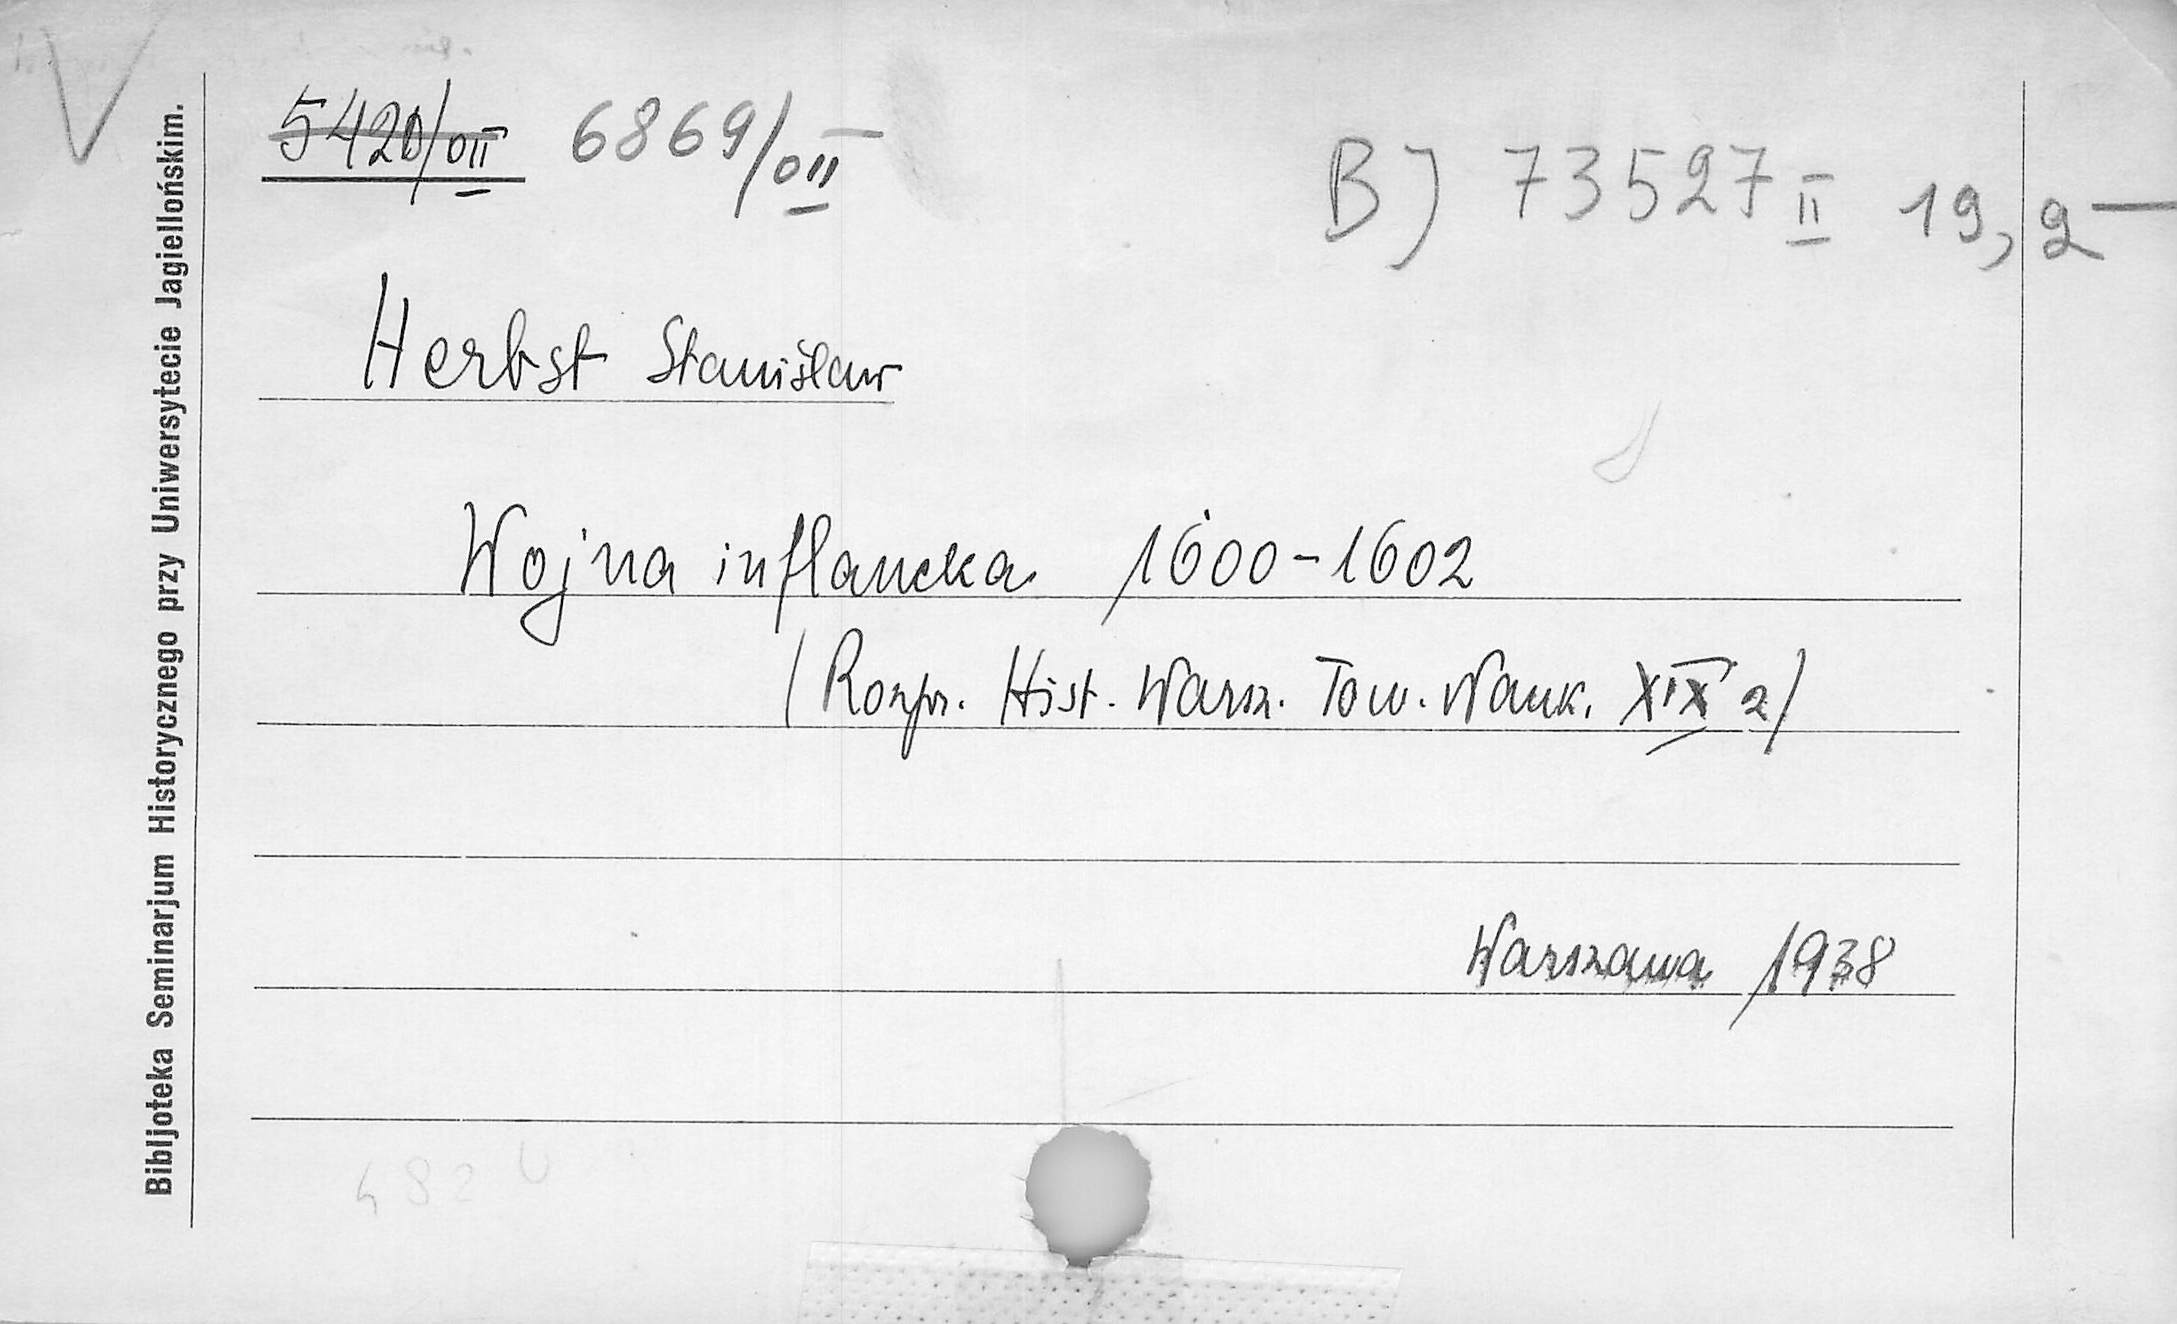 V
5420/0II 6869/0II
B) 73527 II 19,2
Herbst Stanisław
Wojna inflancka 1600-1602
(Rozpr. Hist. Warsz. Tow. Nauk. XIX 2)
Warszawa 1938
Bibljoteka Seminarjum Historycznego przy Uniwersytecie Jagiellońskim.